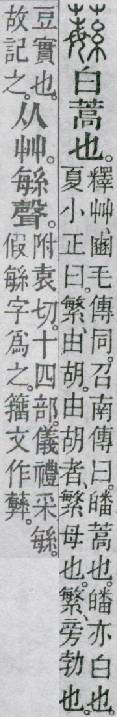 蘩白蒿也。釋艸、豳毛傳同。召南傳曰。皤蒿也。皤亦白也。
夏小正曰。繁、由胡。由胡者、繁母也。繁、旁勃也。
豆實也。故記之。从艸。緐聲。附袁切。十四部。儀禮采緐。
假緐字爲之。籒文作